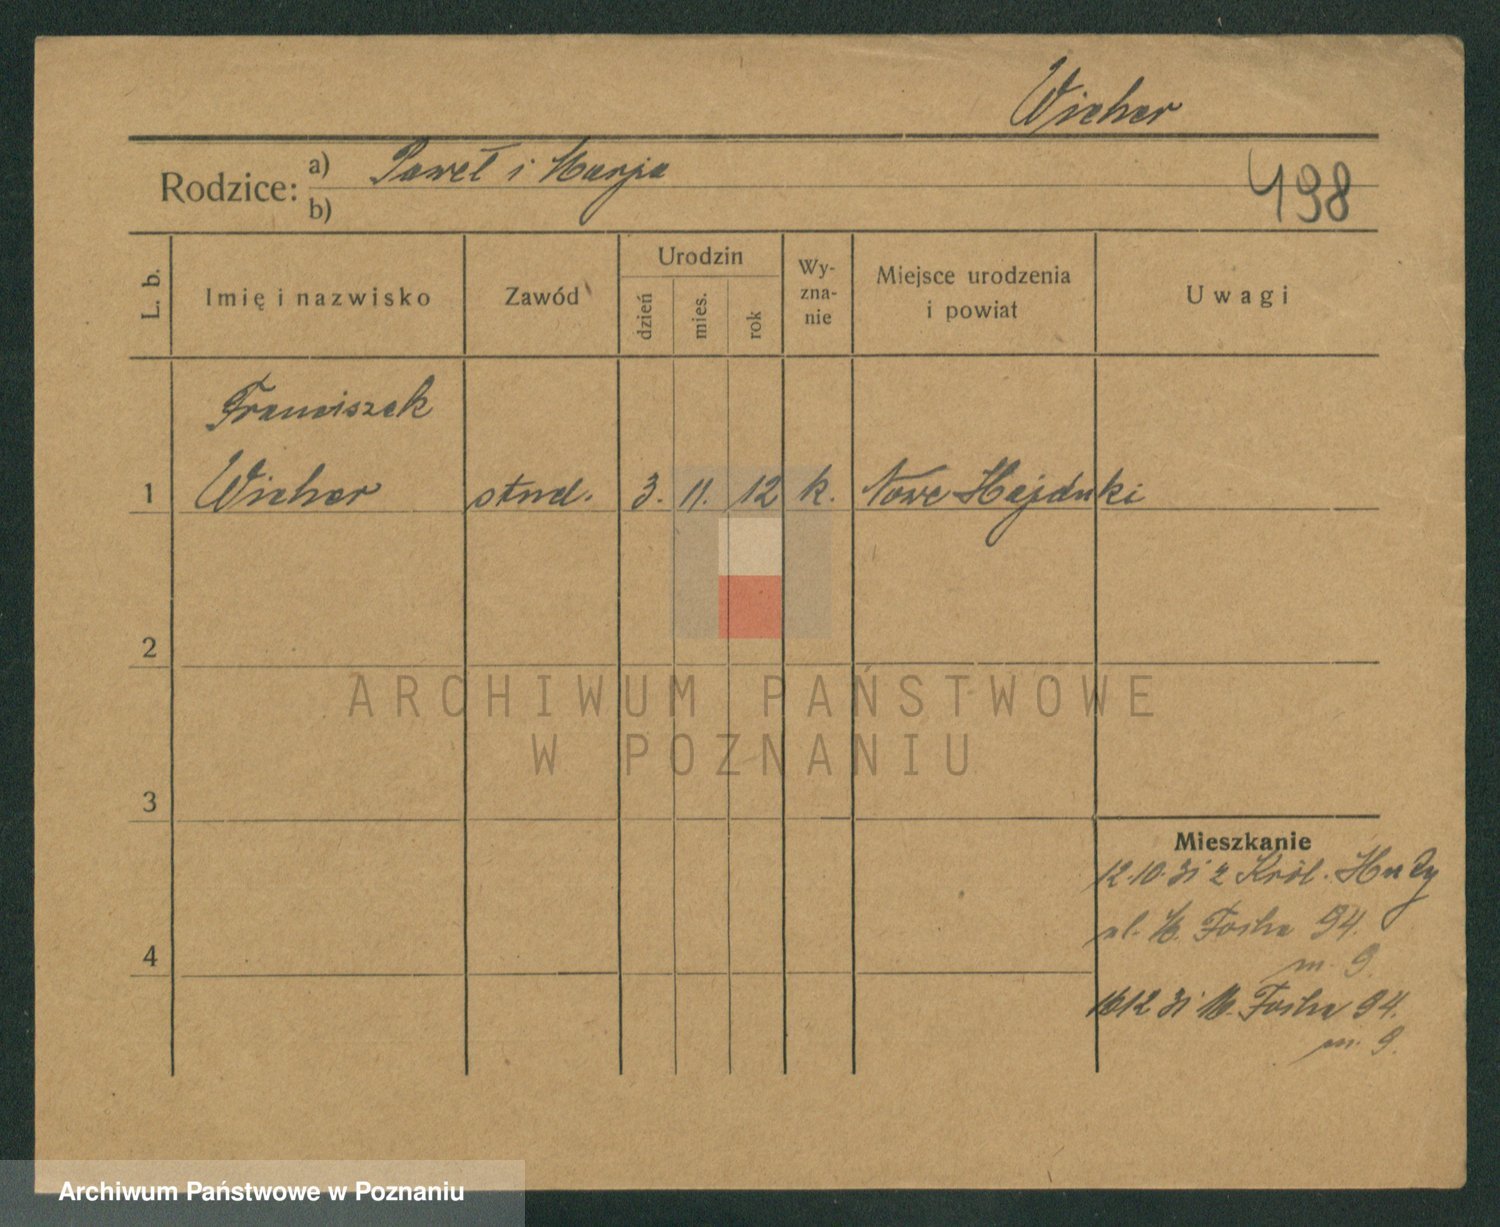 Wicher
Rodzice: a) Paweł i Marja
b)
498
L. b. Imię i nazwisko Zawód Urodzin dzień mies. rok Wy-zna-nie Miejsce urodzenia i powiat Uwagi
Franciszek
1 Wicher stud. 3. 11. 12 k. Nowe Hajduki
2
ARCHIWUM PAŃSTWOWE
W POZNANIU
3
Mieszkanie
12.10.31 z Król. Huty
ul. M. Focha 94.
4
m. 9.
1612 31 M. Focha 94.
m. 9.
Archiwum Państwowe w Poznaniu